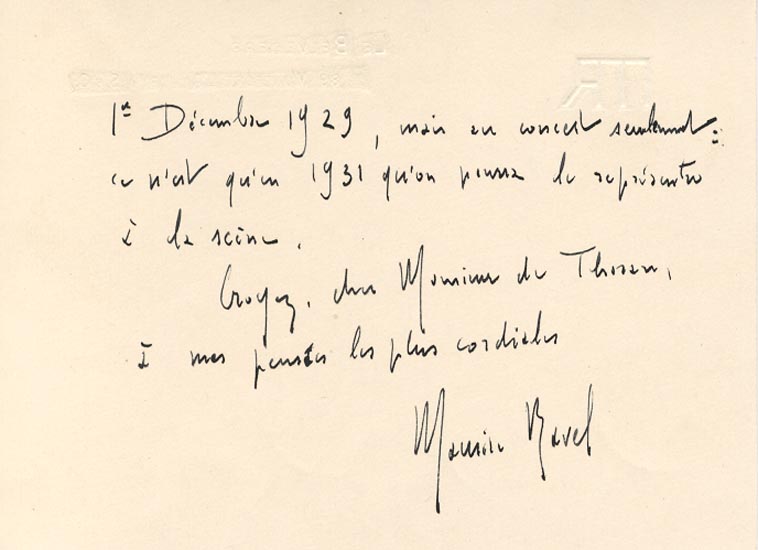 LE BELVÉDÈRE
MR
1er Décembre 1929, mais au concert seulement:
ce n'est qu'en 1931 qu'on pourra le représenter
à la scène.
Croyez, cher Monsieur de Thoran,
à mes pensées les plus cordiales
Maurice Ravel